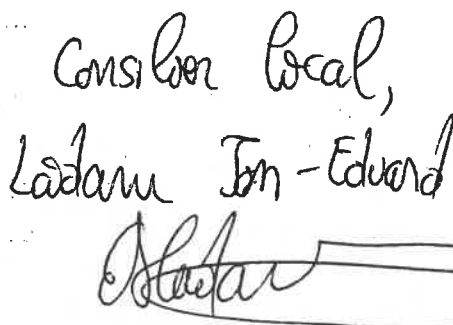 Consilier local,
Ladaru Ion-Eduard